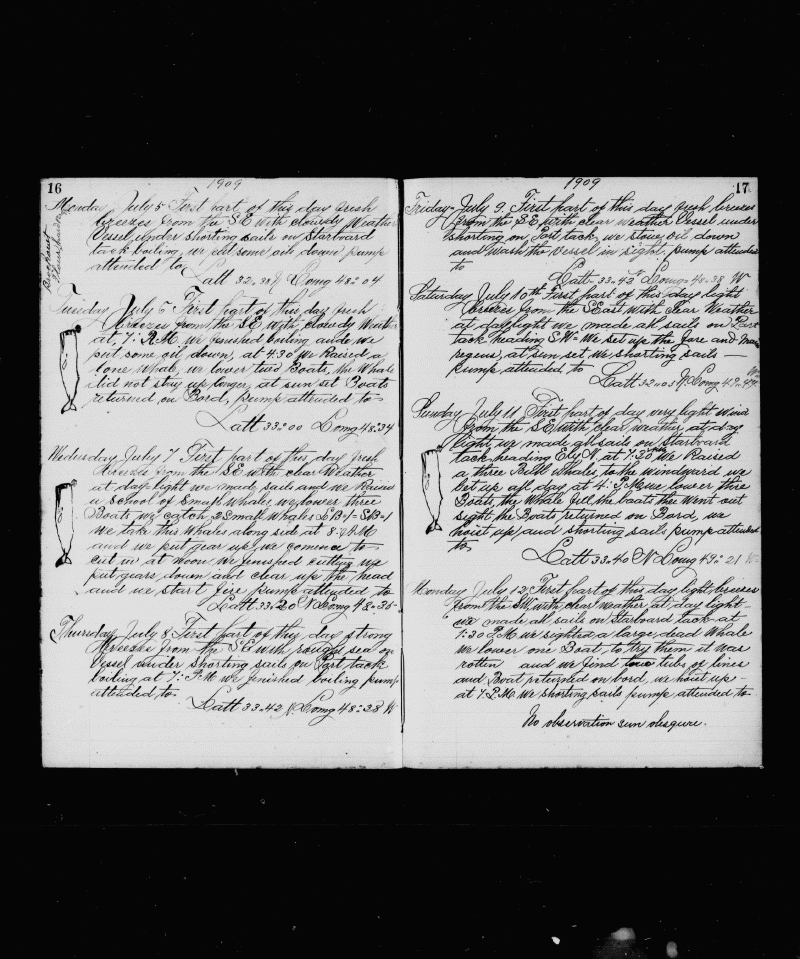 16
1909
Monday July 5 First part of this day fresh
breezes from the S.E with cloudy Weather
Vessel under shorting sails on Starboard
tack boiling, we put some oil down, pump
attended to
Latt 32.38 N Long 48:04
Tuesday July 6 First part of this day fresh
breezes from the S.E with cloudy Weather
at, 7: A.M. we finished boiling and we
put some oil down, at 4:30 we Raised a
lone Whale, we lower two Boats, the Whale
did not stay up longer, at sun set Boats
returned on Bord, pump attended to
Latt 33:00 Long 48:34
Wednesday July 7 First part of this day fresh
breezes from the S.E with clear Weather
at day light we made sails and we Raised
a school of Small Whales we lower three
Boats we catch 2 Small Whales L.B-1- S.B-1
we take this Whales along side at 8: A.M
and we put gear up, we comence to
cut in at noon we finished cutting up
put gears down and clear up the head
and we start fire pump attended to
Latt 33:20 N Long 48:35
Thursday July 8 First part of this day strong
breezes from the S.E with rough sea on
Vessel under shorting sails on Port tack
boiling at 7: P.M we finished boiling pump
attended to.
Latt 33.42 N Long 48:28 W
1909
17
Friday July 9. First part of this day fresh breezes
from the S.E. with clear weather Vessel under
shorting on Port tack, we stow oil down
and Wash the Vessel in sight, pump attended
to
Latt 33.42 N Long 48.38 W
Saturday July 10th First part of this day light
breezes from the S.East with Clear Weather
at day light we made all sails on Port
tack heading S.W- We set up the fore and Main
regens, at sun set We shorting sails —
pump attended to
Latt 32:05 N Long 49.
Sunday July 11 First part of day very light wind
from the S.E with clear weather, at day
light we made all sails on Starboard
tack heading E by N. at 7:30 we Raised
a three Bull Whales, to the windward we
bet up all day at 4: P.M we lower thre
Boats, the Whale fill the boats the Went out
sight the Boats returned on Bord, we
hoist up, and shorting sails pump attended
to
Latt 33.40 N Long 49:21 W
Monday July 12th First part of this day light breezes
from the S.W. with clear Weather at day light-
we made all sails on Starboard tack at
1:30 P.M we sighted a large dead Whale
we lower one Boat, to try them it was
rotten and we find tubs of lines
and Boat returned on bord, we hoist up -
at 7. P.M. We shorting sails pump attended to
No observation sun obsqure.